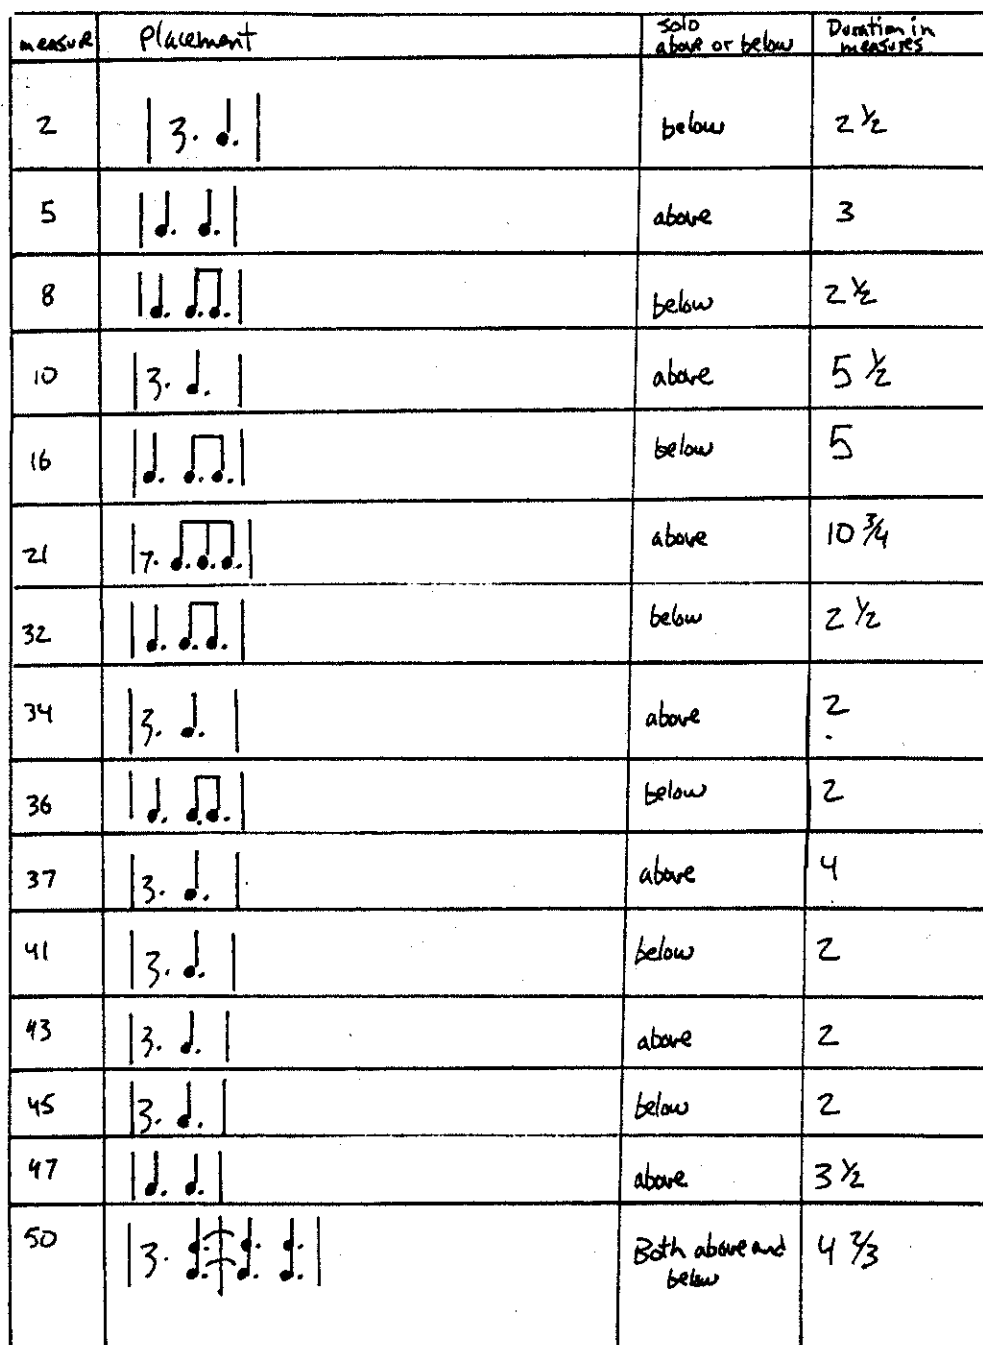 measure Placement solo above or below Duration in measures
2 below 2 ½
5 above 3
8 below 2 ½
10 above 5 ½
16 below 5
21 above 10 ¾
32 below 2 ½
34 above 2
36 below 2
37 above 4
41 below 2
43 above 2
45 below 2
47 above 3 ½
50 Both above and below 4 ⅔